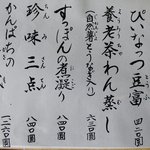 ぴぃなっつ豆富 四二〇円
養老茶わん蒸し
(自然薯とうなぎ入り) 六三〇円
すっぽんの煮凝り 八四〇円
珍味三点 八四〇円
ちんみさんてん
かんぱちの
一、二六〇円